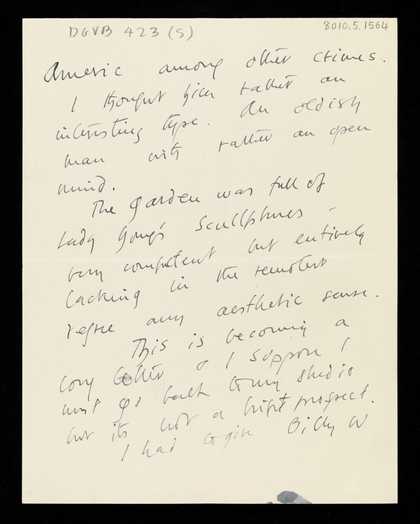 DGVB 423 (5)
8010.5.1564
Americ among other crimes.
I thought him rather an
interesting type. An oldish
man with rather an open
mind.
The garden was full of
Lady Young's sculptures –
very competent but entirely
lacking in the remotest
degree any aesthetic sense.
This is becoming a
long letter & I suppose I
must go back to my studio
but its not a bright prospect.
I had to give Billy W